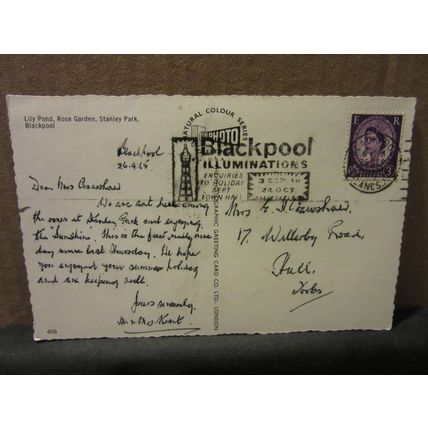 Lily Pond, Rose Garden, Stanley Park,
Blackpool
Blackpool
26.9.65
Dear Mrs Crawshaw
We are sat here among
the roses at Stanley Park and enjoying
the "Sunshine". This is the first really nice
day since last Thursday. We hope
you enjoyed your summer holiday
and are keeping well.
Yours sincerely,
Mr & Mrs Kent.
406
NATURAL COLOUR SERIES
PHOTO
GRAPHIC GREETING CARD CO. LTD., LONDON
Blackpool
ILLUMINATIONS
ENQUIRIES
TO HOLIDAY
DEPT
TOWN HALL
3 SEP. TO
24 OCT.
E R
3
LANCS.
Mrs G. H Crawshaw,
17, Willerby Road,
Hull.
Yorks